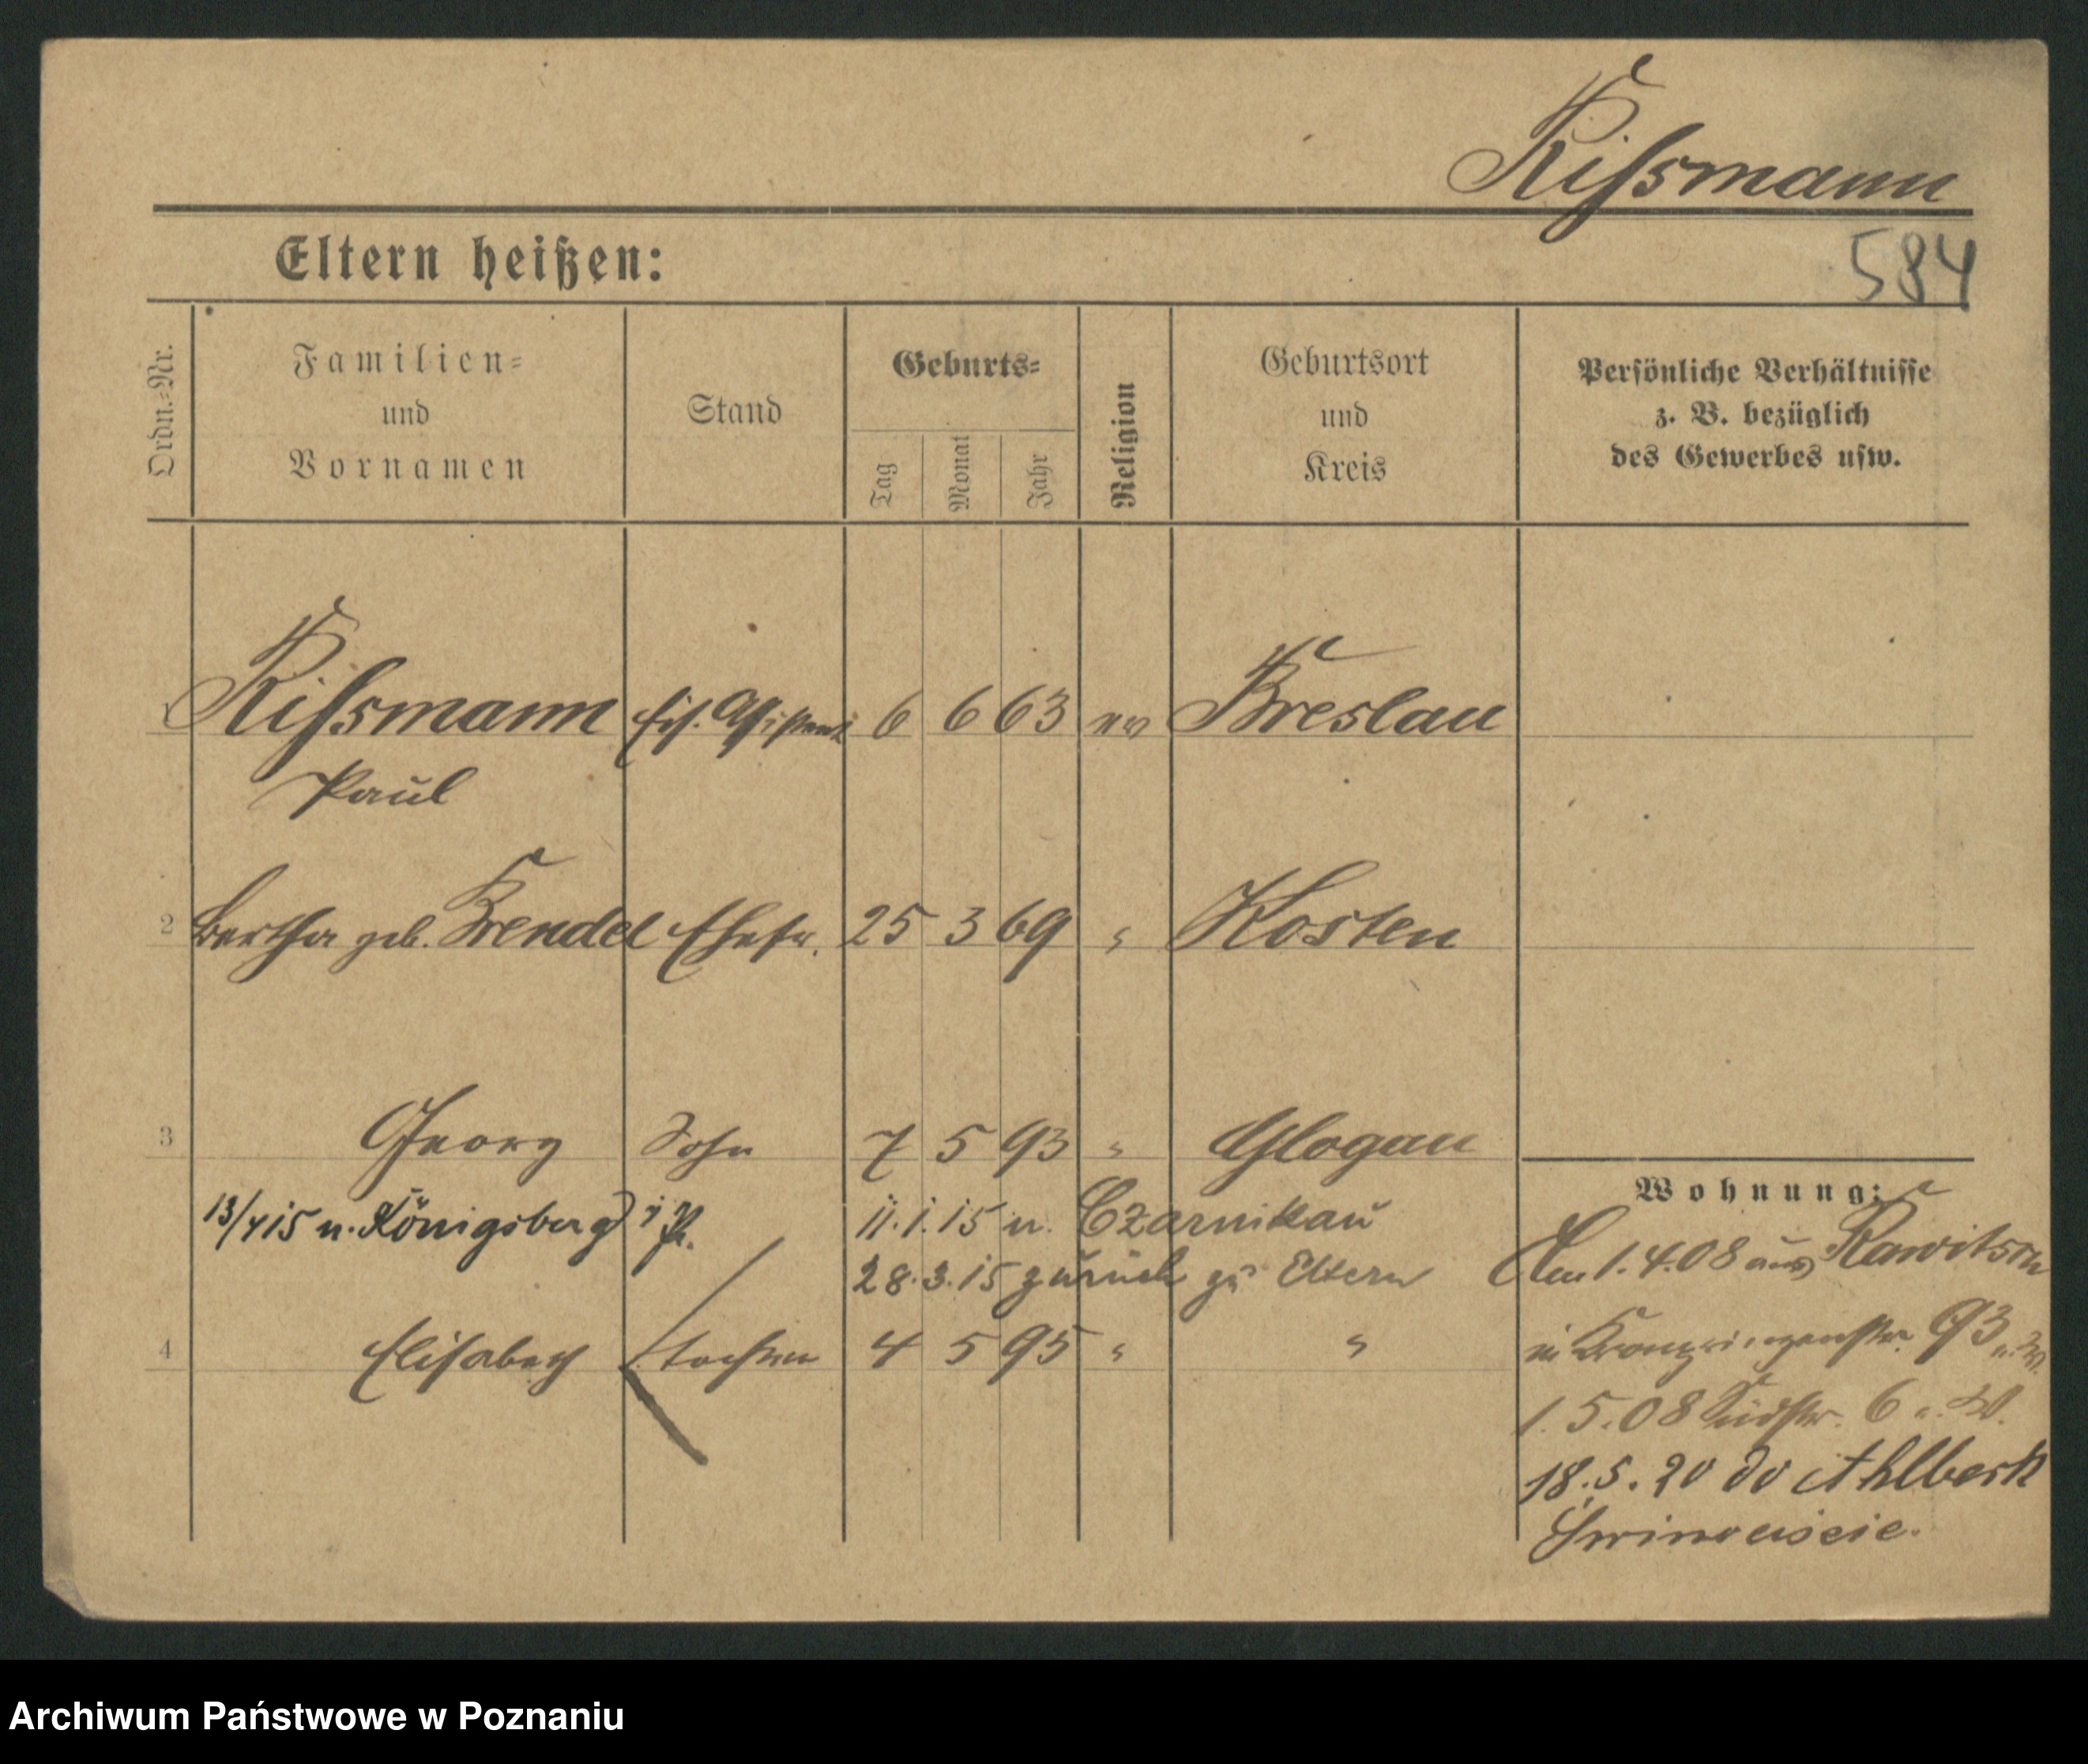 Rißmann
584
Eltern heißen:
Ordn.-Nr.
Familien-
und
Vornamen
Stand
Geburts-
Tag
Monat
Jahr
Religion
Geburtsort
und
Kreis
Persönliche Verhältnisse
z. B. bezüglich
des Gewerbes usw.
1 Rißmann Eis. Assistent 6 6 63 ev Breslau
Paul
2 Bertha geb. Krendel Ehefr. 25 3 69 " Kosten
3 Georg Sohn 7 5 93 " Glogau
13/4 15 n. Königsberg i/ Pr. 11.1.15 n. Czarnikau
28.3.15 zurück zu Eltern
4 Elisabeth Tochter 4 5 95 " "
Wohnung:
Am 1.4.08 aus Rawitsch
in Kronprinzenstr. 93
1.5.08 Südstr. 6
18.5.20 do Ahlbeck
Archiwum Państwowe w Poznaniu